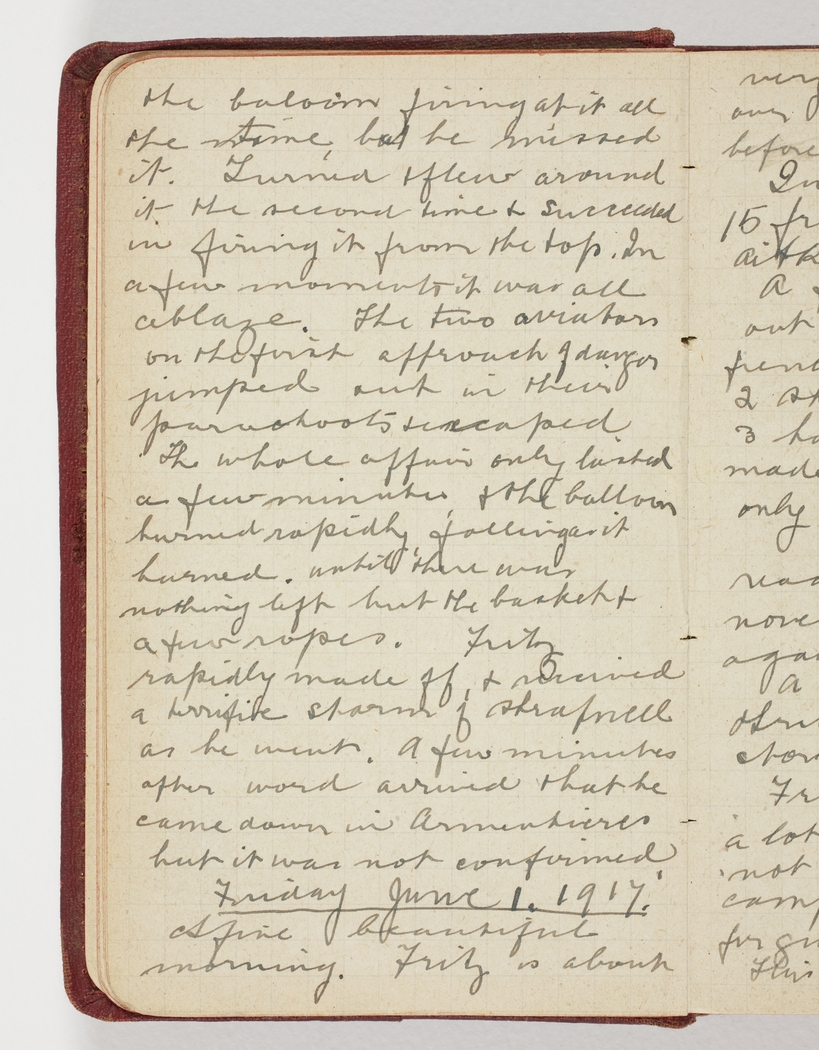 the baloom firing at it all
the time, but he missed
it. Turned & flew around
it the second time & succeeded
in firing it from the top. In
a few moments it was all
ablaze. The two aviators
on the first approach of danger
jumped out in their
parachoots & escaped
The whole affair only lasted
a few minutes, & the balloon
burned rapidly, falling as it
burned. until there was
nothing left but the basket &
a few ropes. Fritz
rapidly made off, & received
a terrific storm of shrapnell
as he went. A few minutes
after word arrived that he
came down in Armentieres
but it was not confirmed
Friday June 1. 1917.
A fine beautiful
morning. Fritz is about
very
over
before
In
15 fr
aitk
A
out
2
3 ha
made
only
nove
agai
A
Fr
a lot
not
camp
This